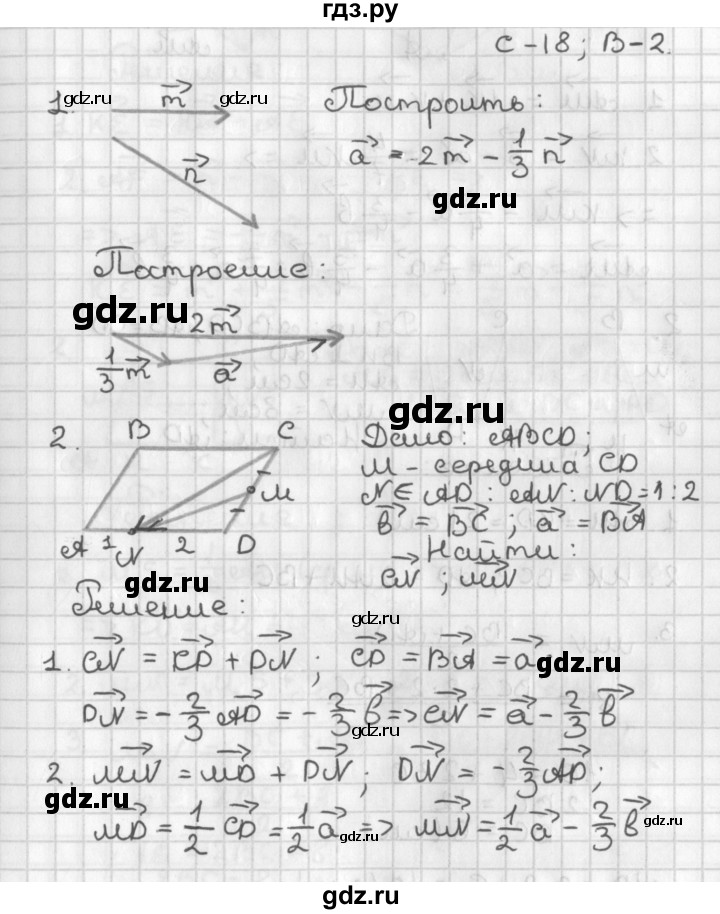 гдз.ру
С-18; В-2.
1. m⃗ Построить:
n⃗ a⃗ = 2m⃗ - 1/3 n⃗
gdz.ru gdz.ru
gdz.ru
Построение:
gdz.ru
2m⃗
1/3 m⃗ a⃗
gdz.ru
2. B C Дано: ABCD;
M - середина CD
M
N ∈ AD : AN : ND = 1 : 2
b⃗ = BC⃗ ; a⃗ = BA⃗
A 1 N 2 D Найти:
CN⃗ ; MN⃗
gdz.ru
Решение:
gdz.ru
1. CN⃗ = CD⃗ + DN⃗ ; CD⃗ = BA⃗ = a⃗
gdz.ru
DN⃗ = - 2/3 AD⃗ = - 2/3 b⃗ => CN⃗ = a⃗ - 2/3 b⃗
2. MN⃗ = MD⃗ + DN⃗ ; DN⃗ = - 2/3 AD⃗ ;
gdz.ru
MD⃗ = 1/2 CD⃗ = 1/2 a⃗ => MN⃗ = 1/2 a⃗ - 2/3 b⃗
gdz.ru gdz.ru
gdz.ru